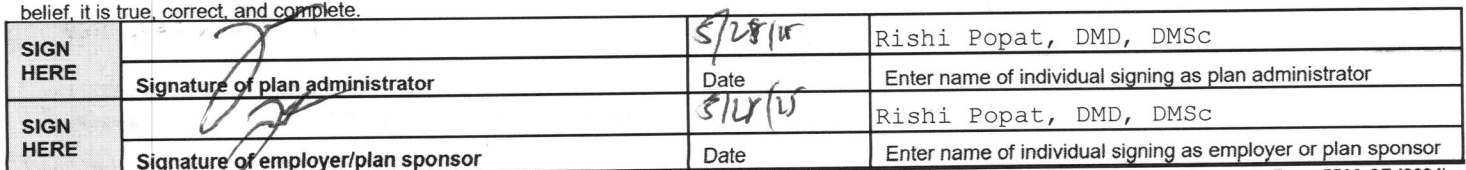 belief, it is true, correct, and complete.
SIGN HERE 5/28/25 Rishi Popat, DMD, DMSc
Signature of plan administrator Date Enter name of individual signing as plan administrator
SIGN HERE 5/28/25 Rishi Popat, DMD, DMSc
Signature of employer/plan sponsor Date Enter name of individual signing as employer or plan sponsor